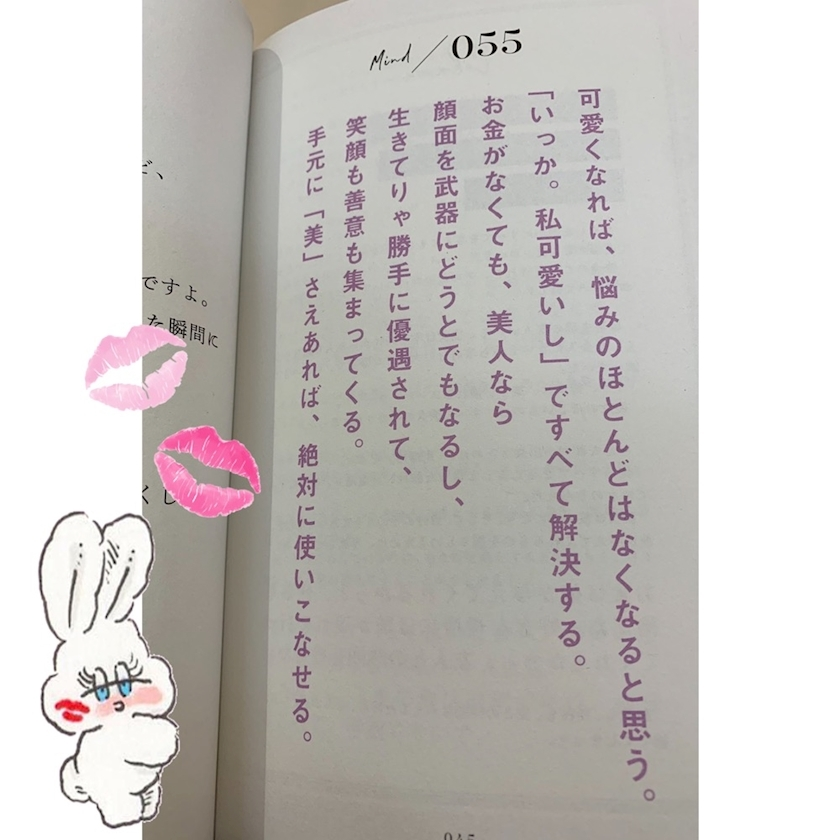 Mind/055
可愛くなれば、悩みのほとんどはなくなると思う。
「いっか。私可愛いし」ですべて解決する。
お金がなくても、美人なら
顔面を武器にどうとでもなるし、
生きてりゃ勝手に優遇されて、
笑顔も善意も集まってくる。
手元に「美」さえあれば、絶対に使いこなせる。
ですよ。
た瞬間に
くし